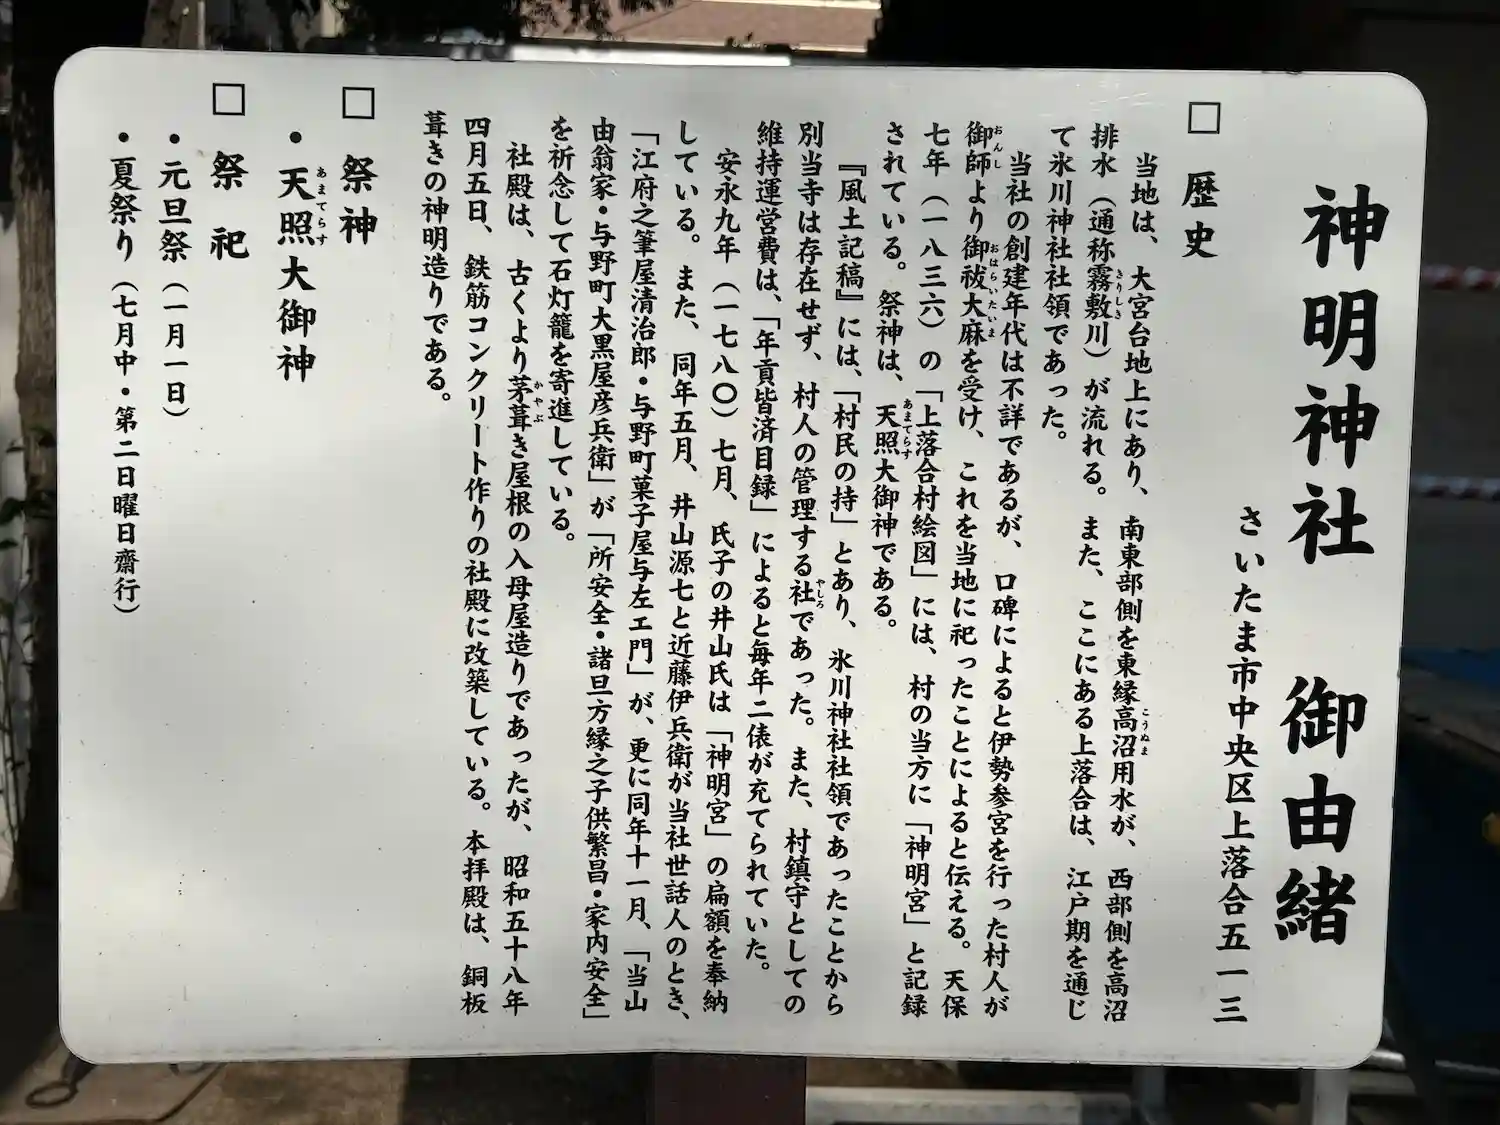 神明神社 御由緒
さいたま市中央区上落合五一三
□ 歴史
当地は、大宮台地上にあり、南東部側を東縁高沼用水が、西部側を高沼
排水(通称霧敷川)が流れる。また、ここにある上落合は、江戸期を通じ
て氷川神社社領であった。
当社の創建年代は不詳であるが、口碑によると伊勢参宮を行った村人が
御師より御祓大麻を受け、これを当地に祀ったことによると伝える。天保
七年(一八三六)の「上落合村絵図」には、村の当方に「神明宮」と記録
されている。祭神は、天照大御神である。
『風土記稿』には、「村民の持」とあり、氷川神社社領であったことから
別当寺は存在せず、村人の管理する社であった。また、村鎮守としての
維持運営費は、「年貢皆済目録」によると毎年二俵が充てられていた。
安永九年(一七八〇)七月、氏子の井山氏は「神明宮」の扁額を奉納
している。また、同年五月、井山源七と近藤伊兵衛が当社世話人のとき、
「江府之筆屋清治郎・与野町菓子屋与左エ門」が、更に同年十一月、「当山
由翁家・与野町大黒屋彦兵衛」が「所安全・諸旦方縁之子供繁昌・家内安全」
を祈念して石灯籠を寄進している。
社殿は、古くより茅葺き屋根の入母屋造りであったが、昭和五十八年
四月五日、鉄筋コンクリート作りの社殿に改築している。本拝殿は、銅板
葺きの神明造りである。
□ 祭神
・天照大御神
□ 祭祀
・元旦祭(一月一日)
・夏祭り(七月中・第二日曜日齋行)